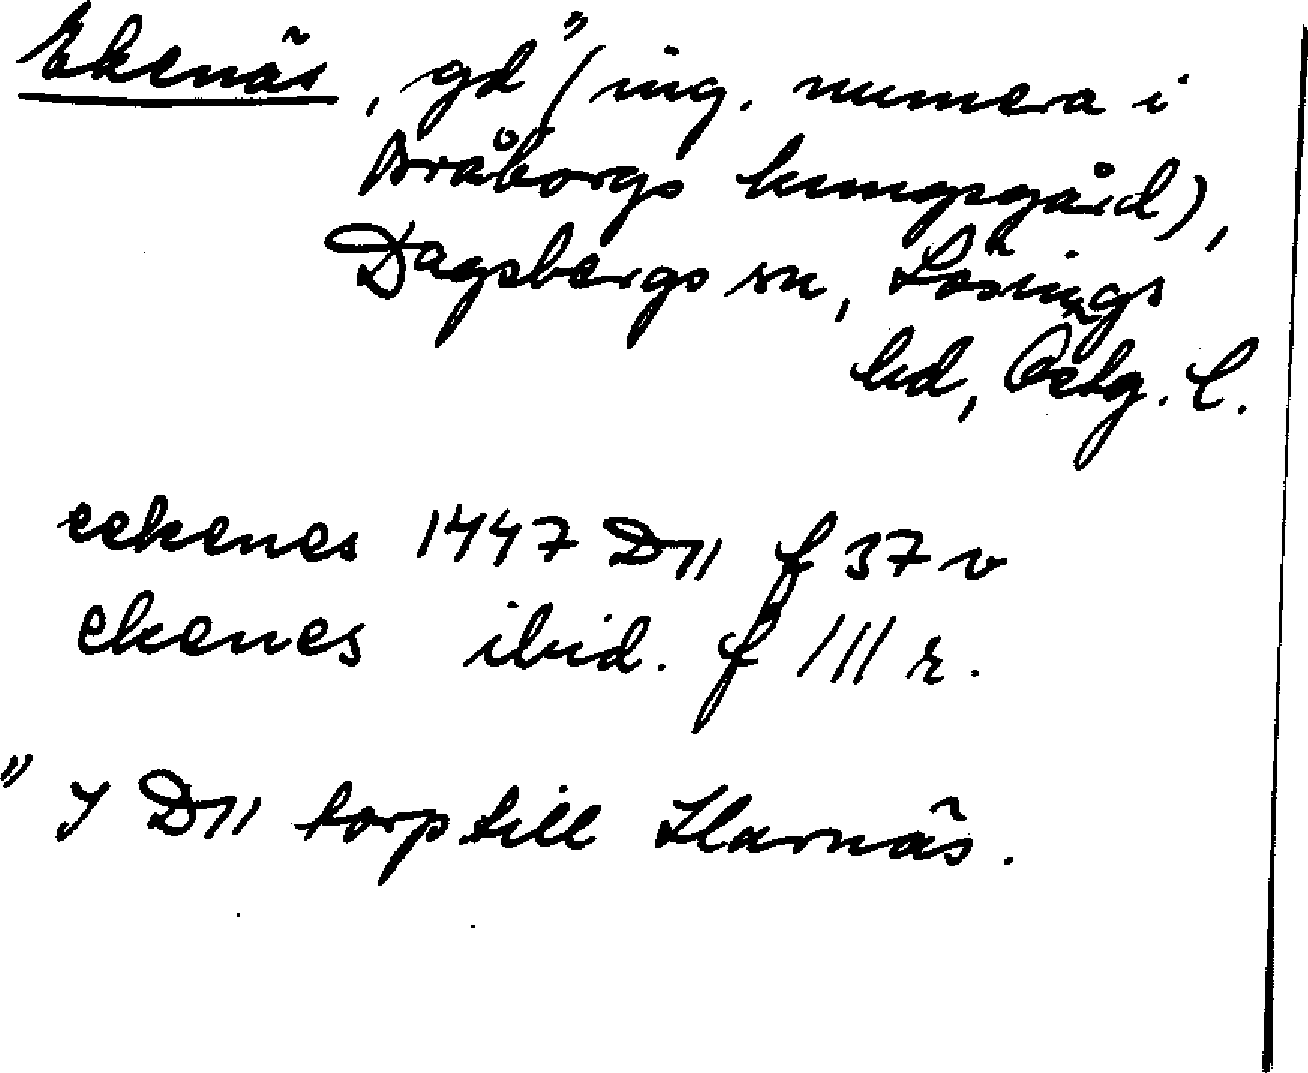 Ekenäs, gd" (ing. numera i
Bråborgs kungsgård),
Dagsbergs sn, Lösings
hd, Östg. l.
eekenes 1447 D11 f 37 v
ekenes ibid. f 111 r.
" I D11 torp till Harnäs.